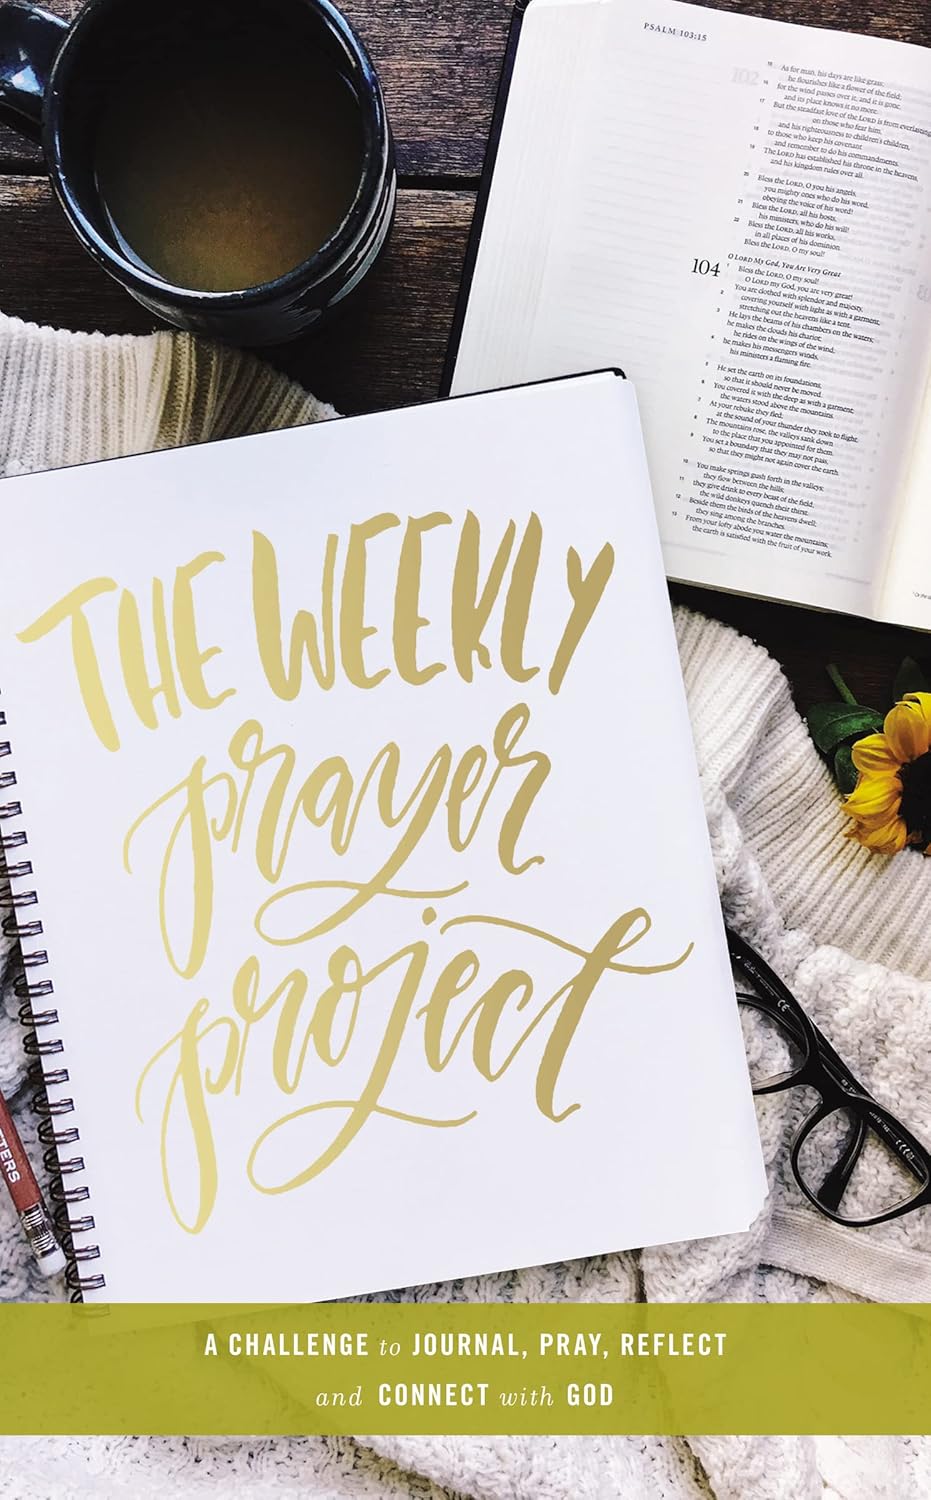 PSALM 103:15
102
15 As for man, his days are like grass;
he flourishes like a flower of the field;
16 for the wind passes over it, and it is gone,
and its place knows it no more.
17 But the steadfast love of the LORD is from everlasting
on those who fear him,
and his righteousness to children's children,
18 to those who keep his covenant
and remember to do his commandments.
19 The LORD has established his throne in the heavens,
and his kingdom rules over all.
20 Bless the LORD, O you his angels,
you mighty ones who do his word,
obeying the voice of his word!
21 Bless the LORD, all his hosts,
his ministers, who do his will!
22 Bless the LORD, all his works,
in all places of his dominion.
Bless the LORD, O my soul!
O LORD My God, You Are Very Great
104 1 Bless the LORD, O my soul!
O LORD my God, you are very great!
You are clothed with splendor and majesty,
2 covering yourself with light as with a garment,
stretching out the heavens like a tent.
3 He lays the beams of his chambers on the waters;
he makes the clouds his chariot;
he rides on the wings of the wind;
4 he makes his messengers winds,
his ministers a flaming fire.
5 He set the earth on its foundations,
so that it should never be moved.
6 You covered it with the deep as with a garment;
the waters stood above the mountains.
7 At your rebuke they fled;
at the sound of your thunder they took to flight.
8 The mountains rose, the valleys sank down
to the place that you appointed for them.
9 You set a boundary that they may not pass,
so that they might not again cover the earth.
10 You make springs gush forth in the valleys;
they flow between the hills;
11 they give drink to every beast of the field;
the wild donkeys quench their thirst.
12 Beside them the birds of the heavens dwell;
they sing among the branches.
13 From your lofty abode you water the mountains;
the earth is satisfied with the fruit of your work.
THE WEEKLY
prayer
project
A CHALLENGE to JOURNAL, PRAY, REFLECT
and CONNECT with GOD